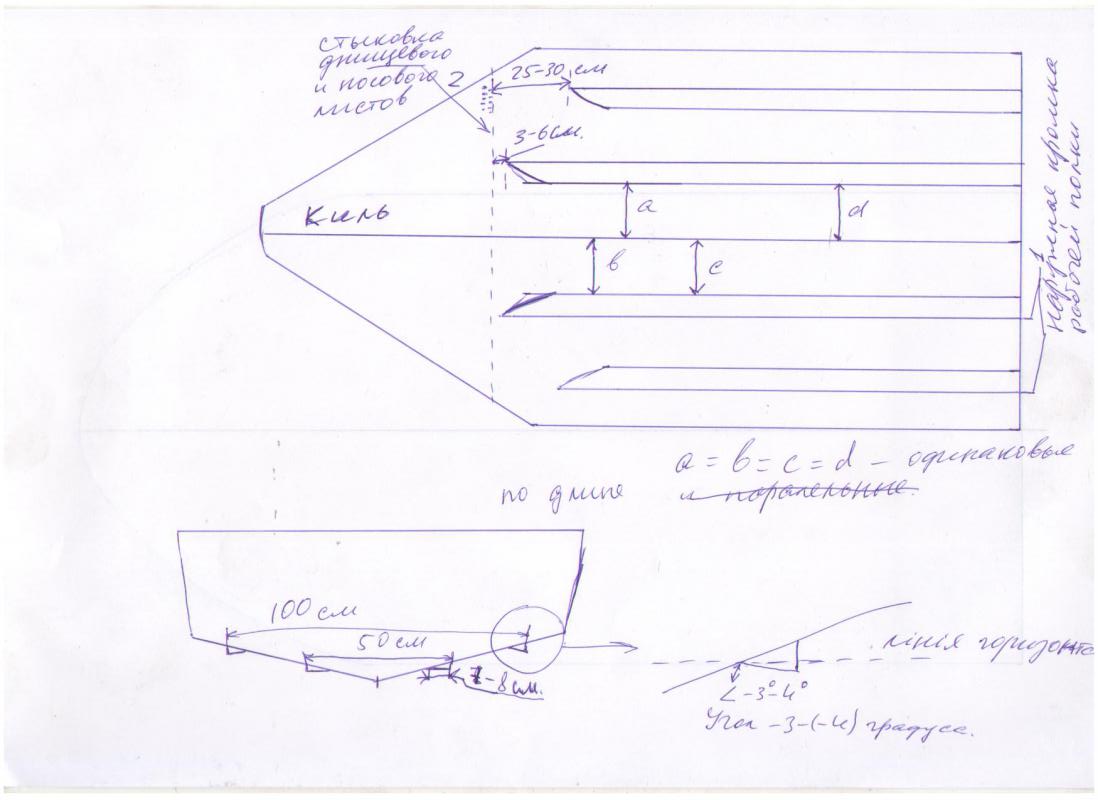 стыковка
днищевого
и носового 2
листов
25-30 см
3-6см.
Киль
a
d
в
c
1
наружная кромка
рабочей полки
a = в = c = d - одинаковые
по длине и паралельные.
100 см
50 см
7-8см.
лінія горизонта
∠-3°-4°
Угол -3-(-4) градуса.